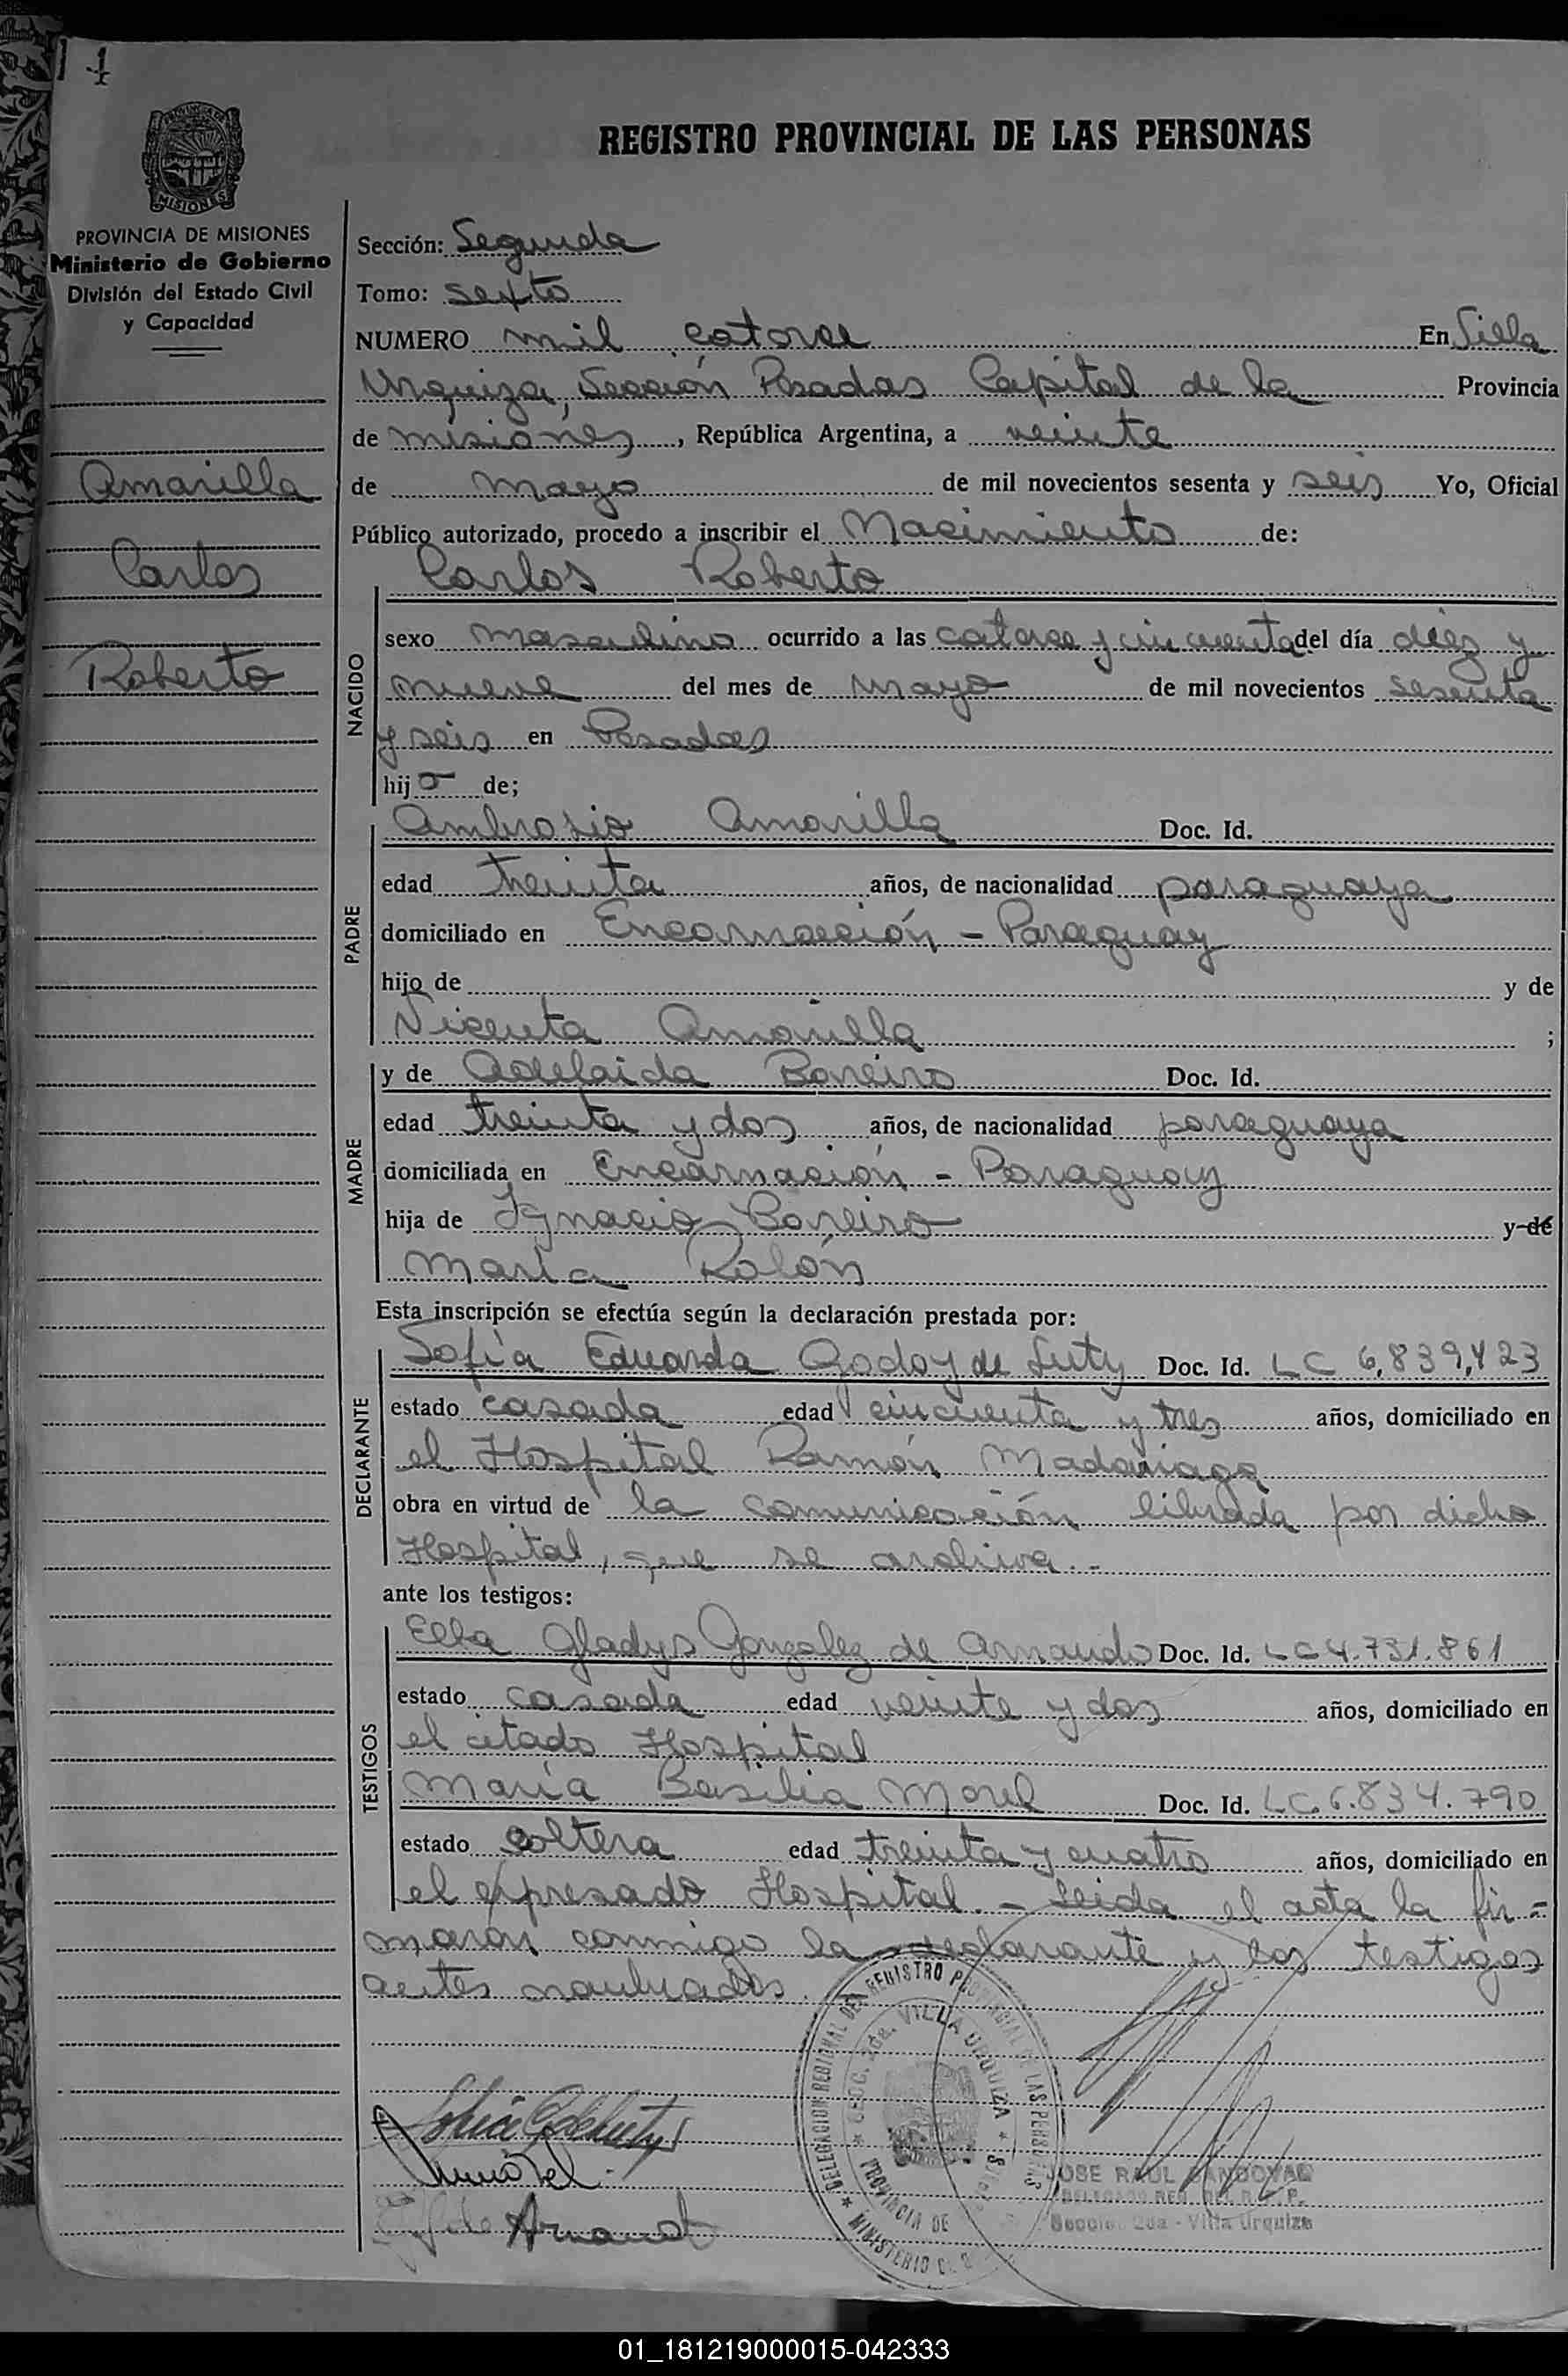 1
REGISTRO PROVINCIAL DE LAS PERSONAS
PROVINCIA DE MISIONES
Ministerio de Gobierno
División del Estado Civil
y Capacidad
Amarilla
Carlos
Roberto
Sección: Segunda
Tomo: Sexto
NUMERO mil catorce En Villa
Urquiza, Sección Posadas Capital de la Provincia
de misiones, República Argentina, a veinte
de mayo de mil novecientos sesenta y seis Yo, Oficial
Público autorizado, procedo a inscribir el Nacimiento de:
Carlos Roberto
NACIDO
sexo masculino ocurrido a las catorce y cincuenta del día diez y
nueve del mes de mayo de mil novecientos sesenta
y seis en Posadas
hijo de;
PADRE
Ambrosio Amarilla Doc. Id.
edad treinta años, de nacionalidad paraguaya
domiciliado en Encarnación - Paraguay
hijo de y de
Vicenta Amarilla ;
MADRE
y de Adelaida Boneiro Doc. Id.
edad treinta y dos años, de nacionalidad paraguaya
domiciliada en Encarnación - Paraguay
hija de Ignacio Boneiro y de
María Rolón
Esta inscripción se efectúa según la declaración prestada por:
DECLARANTE
Sofía Eduarda Godoy de Luty Doc. Id. LC 6,839,423
estado casada edad cincuenta y tres años, domiciliado en
el Hospital Ramón Madariaga
obra en virtud de la comunicación librada por dicho
Hospital, que se archiva.-
ante los testigos:
TESTIGOS
Elba Gladys Gonzalez de Arnaudo Doc. Id. LC 4.731.861
estado casada edad veinte y dos años, domiciliado en
el citado Hospital
María Basilia Morel Doc. Id. LC. 6.834.790
estado soltera edad treinta y cuatro años, domiciliado en
el expresado Hospital.- Leida el acta la fir=
maron conmigo la declarante y los testigos
antes nombrados.
DELEGACION REGIONAL DEL REGISTRO PROVINCIAL DE LAS PERSONAS
SECC. 2da. VILLA URQUIZA
PROVINCIA DE
MINISTERIO DE G
JOSE RAUL SANDOVAL
DELEGADO REG. DEL R. P. P.
Sección 2da - Villa Urquiza
01_181219000015-042333